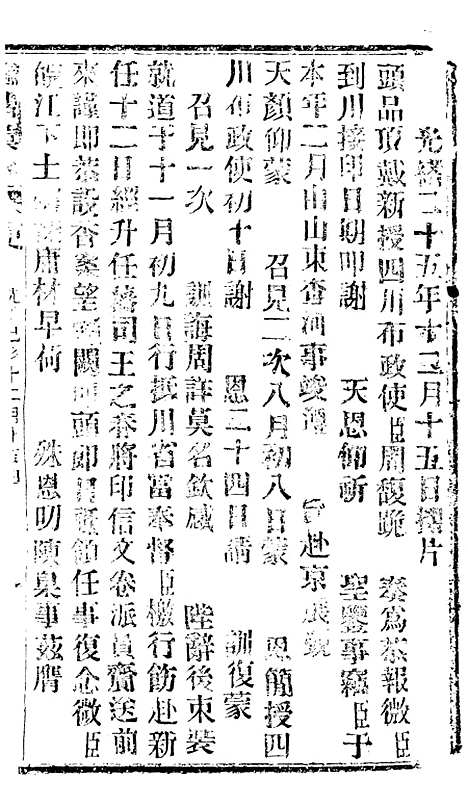 光緒二十五年十二月十五日摺片
頭品頂戴新授四川布政使臣周馥跪 奏爲恭報微臣
到川接印日期叩謝 天恩仰祈 聖鑒事竊臣于
本年二月由山東查河事竣遵 旨赴京展覲
天顏仰蒙 召見二次八月初八日蒙 恩簡授四
川布政使初十日謝 恩二十四日請 訓復蒙
召見一次 訓誨周詳莫名欽感 陛辭後束裝
就道于十一月初九日行抵川省當奉督臣檄行飭赴新
任十二日經升任藩司王之春將印信文卷派員齎送前
來謹即恭設香案望 闕叩頭即日祗領任事復念微臣
皖江下士 庸材早荷 殊恩叨陳臬事茲膺